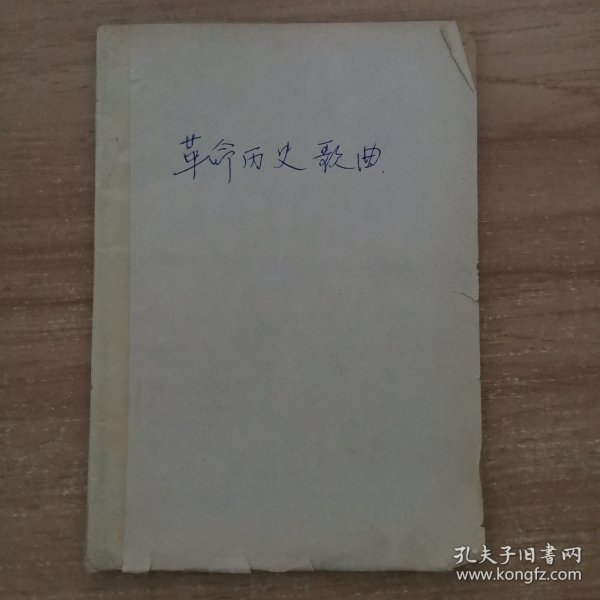 革命历史歌曲
孔夫子旧書网
www.kongfz.com